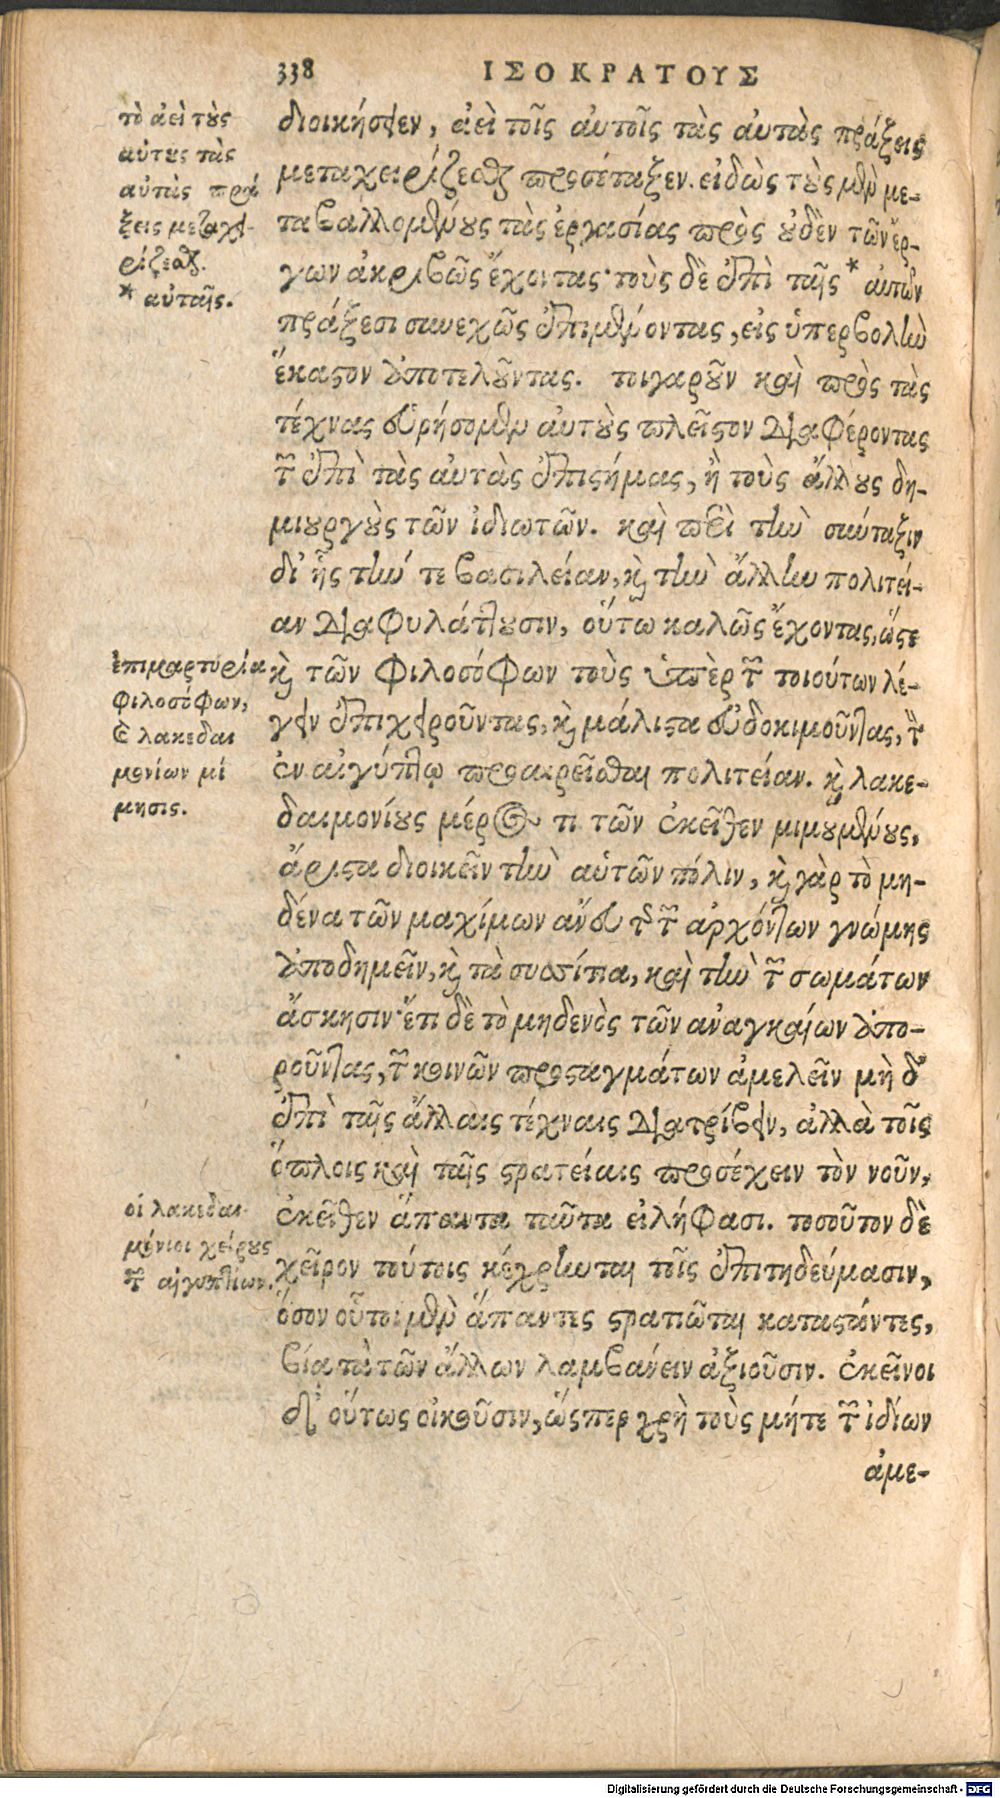 338 ΙΣΟΚΡΑΤΟΥΣ
τὸ ἀεὶ τοὺς
αὐτοὺς τὰς
αὐτὰς πρά
ξεις μεταχει-
ρίζεσθαι.
* αὐταῖς.
διοικήσειεν, ἀεὶ τοῖς αὐτοῖς τὰς αὐτὰς πράξεις
μεταχειρίζεσθαι προσέταξεν. εἰδὼς τοὺς μὲν με-
ταβαλλομένους τὰς ἐργασίας πρὸς οὐδὲν τῶν ἔρ-
γων ἀκριβῶς ἔχοντας· τοὺς δὲ ἐπὶ ταῖς * αὐτῶν
πράξεσι συνεχῶς ἐπιμένοντας, εἰς ὑπερβολὴν
ἕκαστον ἀποτελοῦντας. τοιγαροῦν καὶ πρὸς τὰς
τέχνας εὑρήσομεν αὐτοὺς πλεῖστον διαφέροντας
τῶν ἐπὶ τὰς αὐτὰς ἐπιστήμας, ἢ τοὺς ἄλλους δη-
μιουργοὺς τῶν ἰδιωτῶν. καὶ περὶ τὴν σύνταξιν
δι' ἧς τήν τε βασιλείαν, καὶ τὴν ἄλλην πολιτεί-
αν διαφυλάττουσιν, οὕτω καλῶς ἔχοντας, ὥστε
ἐπιμαρτυρία
φιλοσόφων,
καὶ λακεδαι
μονίων μί
μησις.
καὶ τῶν φιλοσόφων τοὺς ὑπὲρ τῶν τοιούτων λέ-
γειν ἐπιχειροῦντας, καὶ μάλιστα εὐδοκιμοῦντας, τὴν
ἐν αἰγύπτῳ προαιρεῖσθαι πολιτείαν. καὶ λακε-
δαιμονίους μέρος τι τῶν ἐκεῖθεν μιμουμένους,
ἄριστα διοικεῖν τὴν αὑτῶν πόλιν, καὶ γὰρ τὸ μη-
δένα τῶν μαχίμων ἄνευ τῆς τῶν ἀρχόντων γνώμης
ἀποδημεῖν, καὶ τὰ συσσίτια, καὶ τὴν τῶν σωμάτων
ἄσκησιν· ἔτι δὲ τὸ μηδενὸς τῶν ἀναγκαίων ἀπο-
ροῦντας, τῶν κοινῶν προσταγμάτων ἀμελεῖν μὴ δ'
ἐπὶ ταῖς ἄλλαις τέχναις διατρίβειν, ἀλλὰ τοῖς
ὅπλοις καὶ ταῖς στρατείαις προσέχειν τὸν νοῦν,
οἱ λακεδαι-
μόνιοι χείρους
τῶν αἰγυπτίων.
ἐκεῖθεν ἅπαντα ταῦτα εἰλήφασι. τοσοῦτον δὲ
χεῖρον τούτοις κέχρηνται τοῖς ἐπιτηδεύμασιν,
ὅσον οὗτοι μὲν ἅπαντες στρατιῶται καταστάντες,
βίᾳ τὰ τῶν ἄλλων λαμβάνειν ἀξιοῦσιν. ἐκεῖνοι
δ' οὕτως οἰκοῦσιν, ὥσπερ χρὴ τοὺς μήτε τῶν ἰδίων
ἀμε-
Digitalisierung gefördert durch die Deutsche Forschungsgemeinschaft - DFG